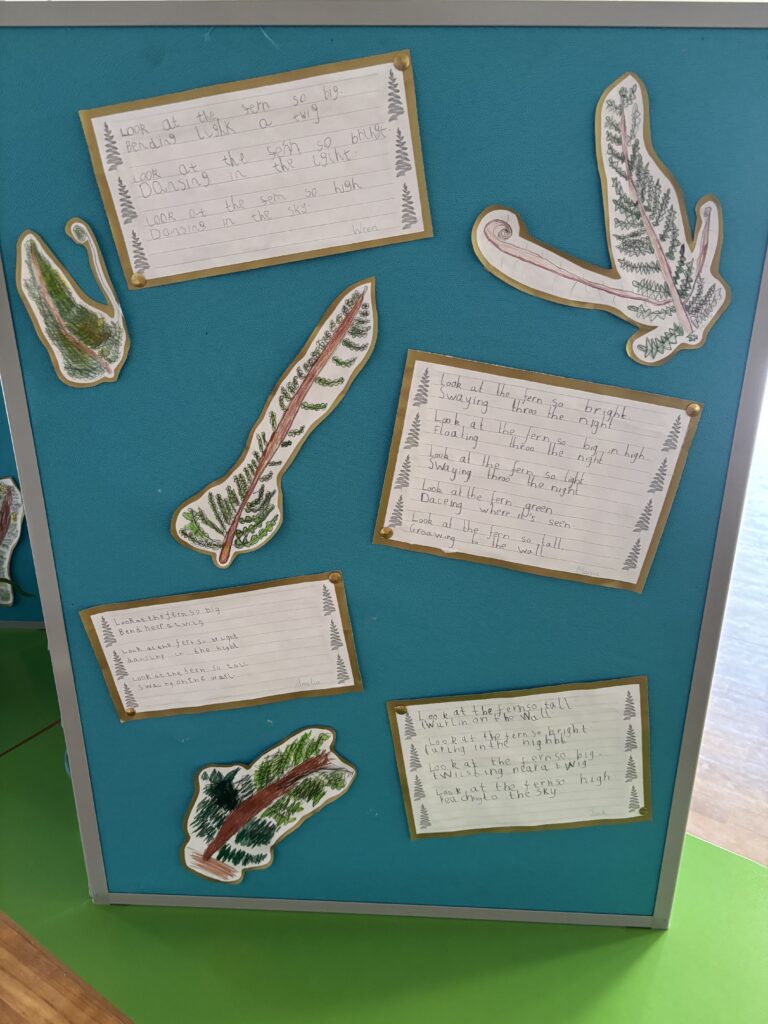 LOOK at the fern so big.
Bending light a twig
LOOK at the fehn so bright
Dansing in the light.
LOOK at the fern so high
Dansing in the sky
Look at the fern so bright.
Swaying throo the night
Look at the fern so big in high.
Floating throo the night
Look at the fern so light
Swaying throo the night
Look at the fern green
Daceing where it's seen
Look at the fern so tall.
Groawing to the wall
Look at the fern so big
Bend heer a twig
Look at the fern so bright
dancing in the night
Look at the fern so tall
Swaying on the wall
Amelia
Look at the fern so tall
twurlin on the wall
Look at the fern so bright
curling in the night
Look at the fern so big.
twisting near a twig
Look at the fern so high
reaching to the sky
Jack